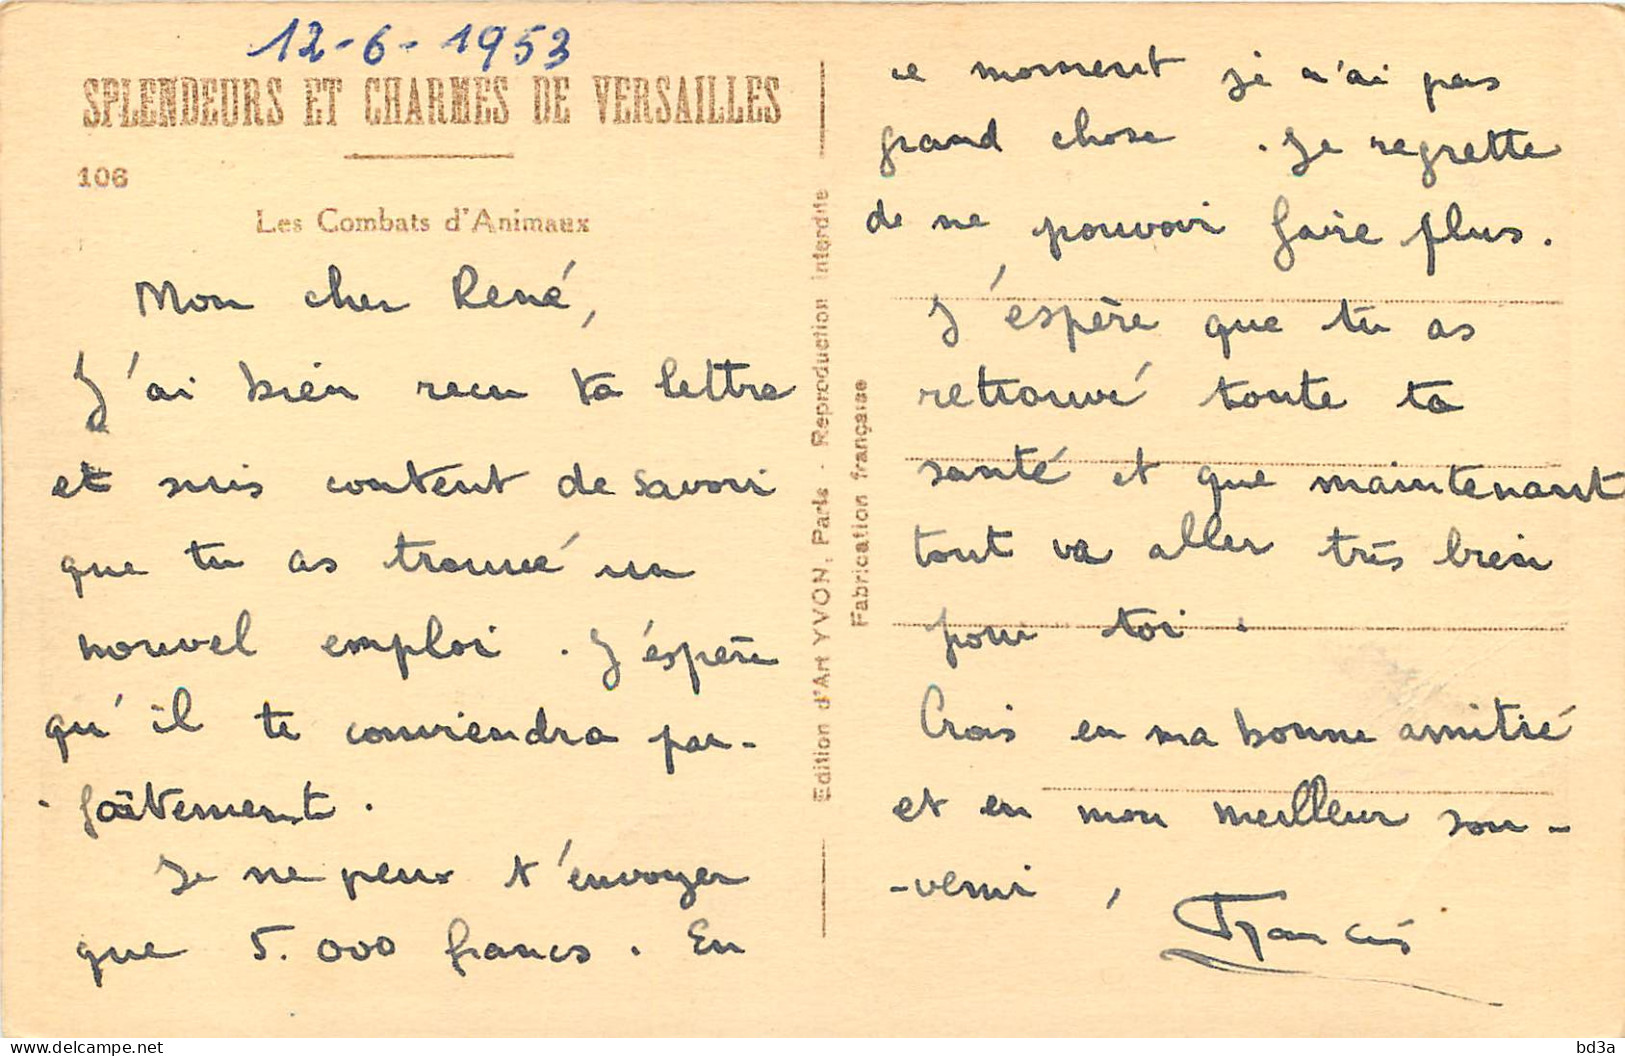 12-6-1953
SPLENDEURS ET CHARMES DE VERSAILLES
106
Les Combats d'Animaux
Mon cher René,
J'ai bien recu ta lettre
et suis content de savoir
que tu as trouvé un
nouvel emploi. J'espère
qu'il te conviendra par-
faitement.
Je ne peux t'envoyer
que 5.000 francs. En
Edition d'Art YVON, Paris - Reproduction interdite
Fabrication française
ce moment je n'ai pas
grand chose. Je regrette
de ne pouvoir faire plus.
J'espère que tu as
retrouvé toute ta
santé et que maintenant
tout va aller très bien
pour toi.
Crois en ma bonne amitié
et en mon meilleur sou-
-venir,
Francis
delcampe.net
bd3a